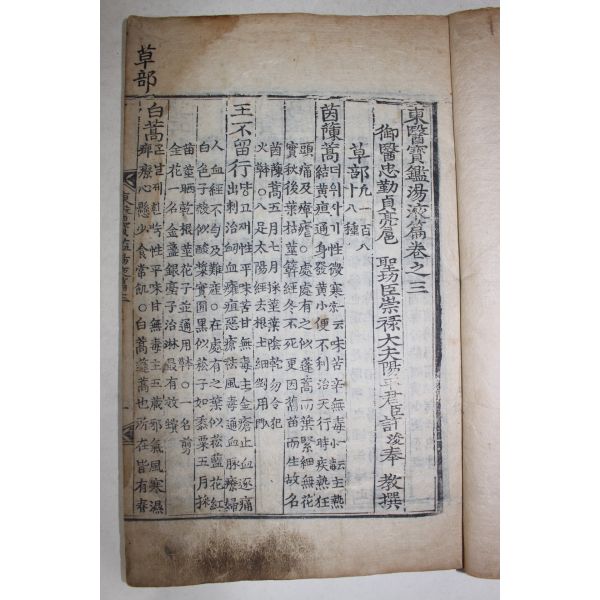 草部
東醫寶鑑湯液篇卷之三
御醫忠勤貞亮扈 聖功臣崇祿大夫陽平君臣許浚奉 教撰
草部下 凡一百八
十八種
茵蔯蒿 더위자기 性微寒 一云 味苦辛無毒 一云小毒 主熱
結黃疸通身發黃小便不利治天行時疾熱狂
頭痛及瘴瘧○處處有之似蓬蒿而葉緊細無花
實秋後葉枯莖簳經冬不死更因舊苗而生故名
茵蔯蒿五月七月採莖葉陰乾勿令犯
火 本草 ○入足太陽經去根土細剉用
王不留行 性平味苦甘無毒主金瘡止血逐痛
出刺治衄血癰疽惡瘡祛風毒通血脉療婦
人血經不勻及難産○在處有之葉似菘藍花紅
白色子殼似酸漿實圓黑似菘子如黍粟五月採
苗莖晒乾根莖花子並通用 本草 ○一名剪
金花一名金盞銀臺子治淋最有效
白蒿 性平味甘無毒主五藏邪氣風寒濕
痺療心懸少食常飢○白蒿蓬蒿也所在皆有春